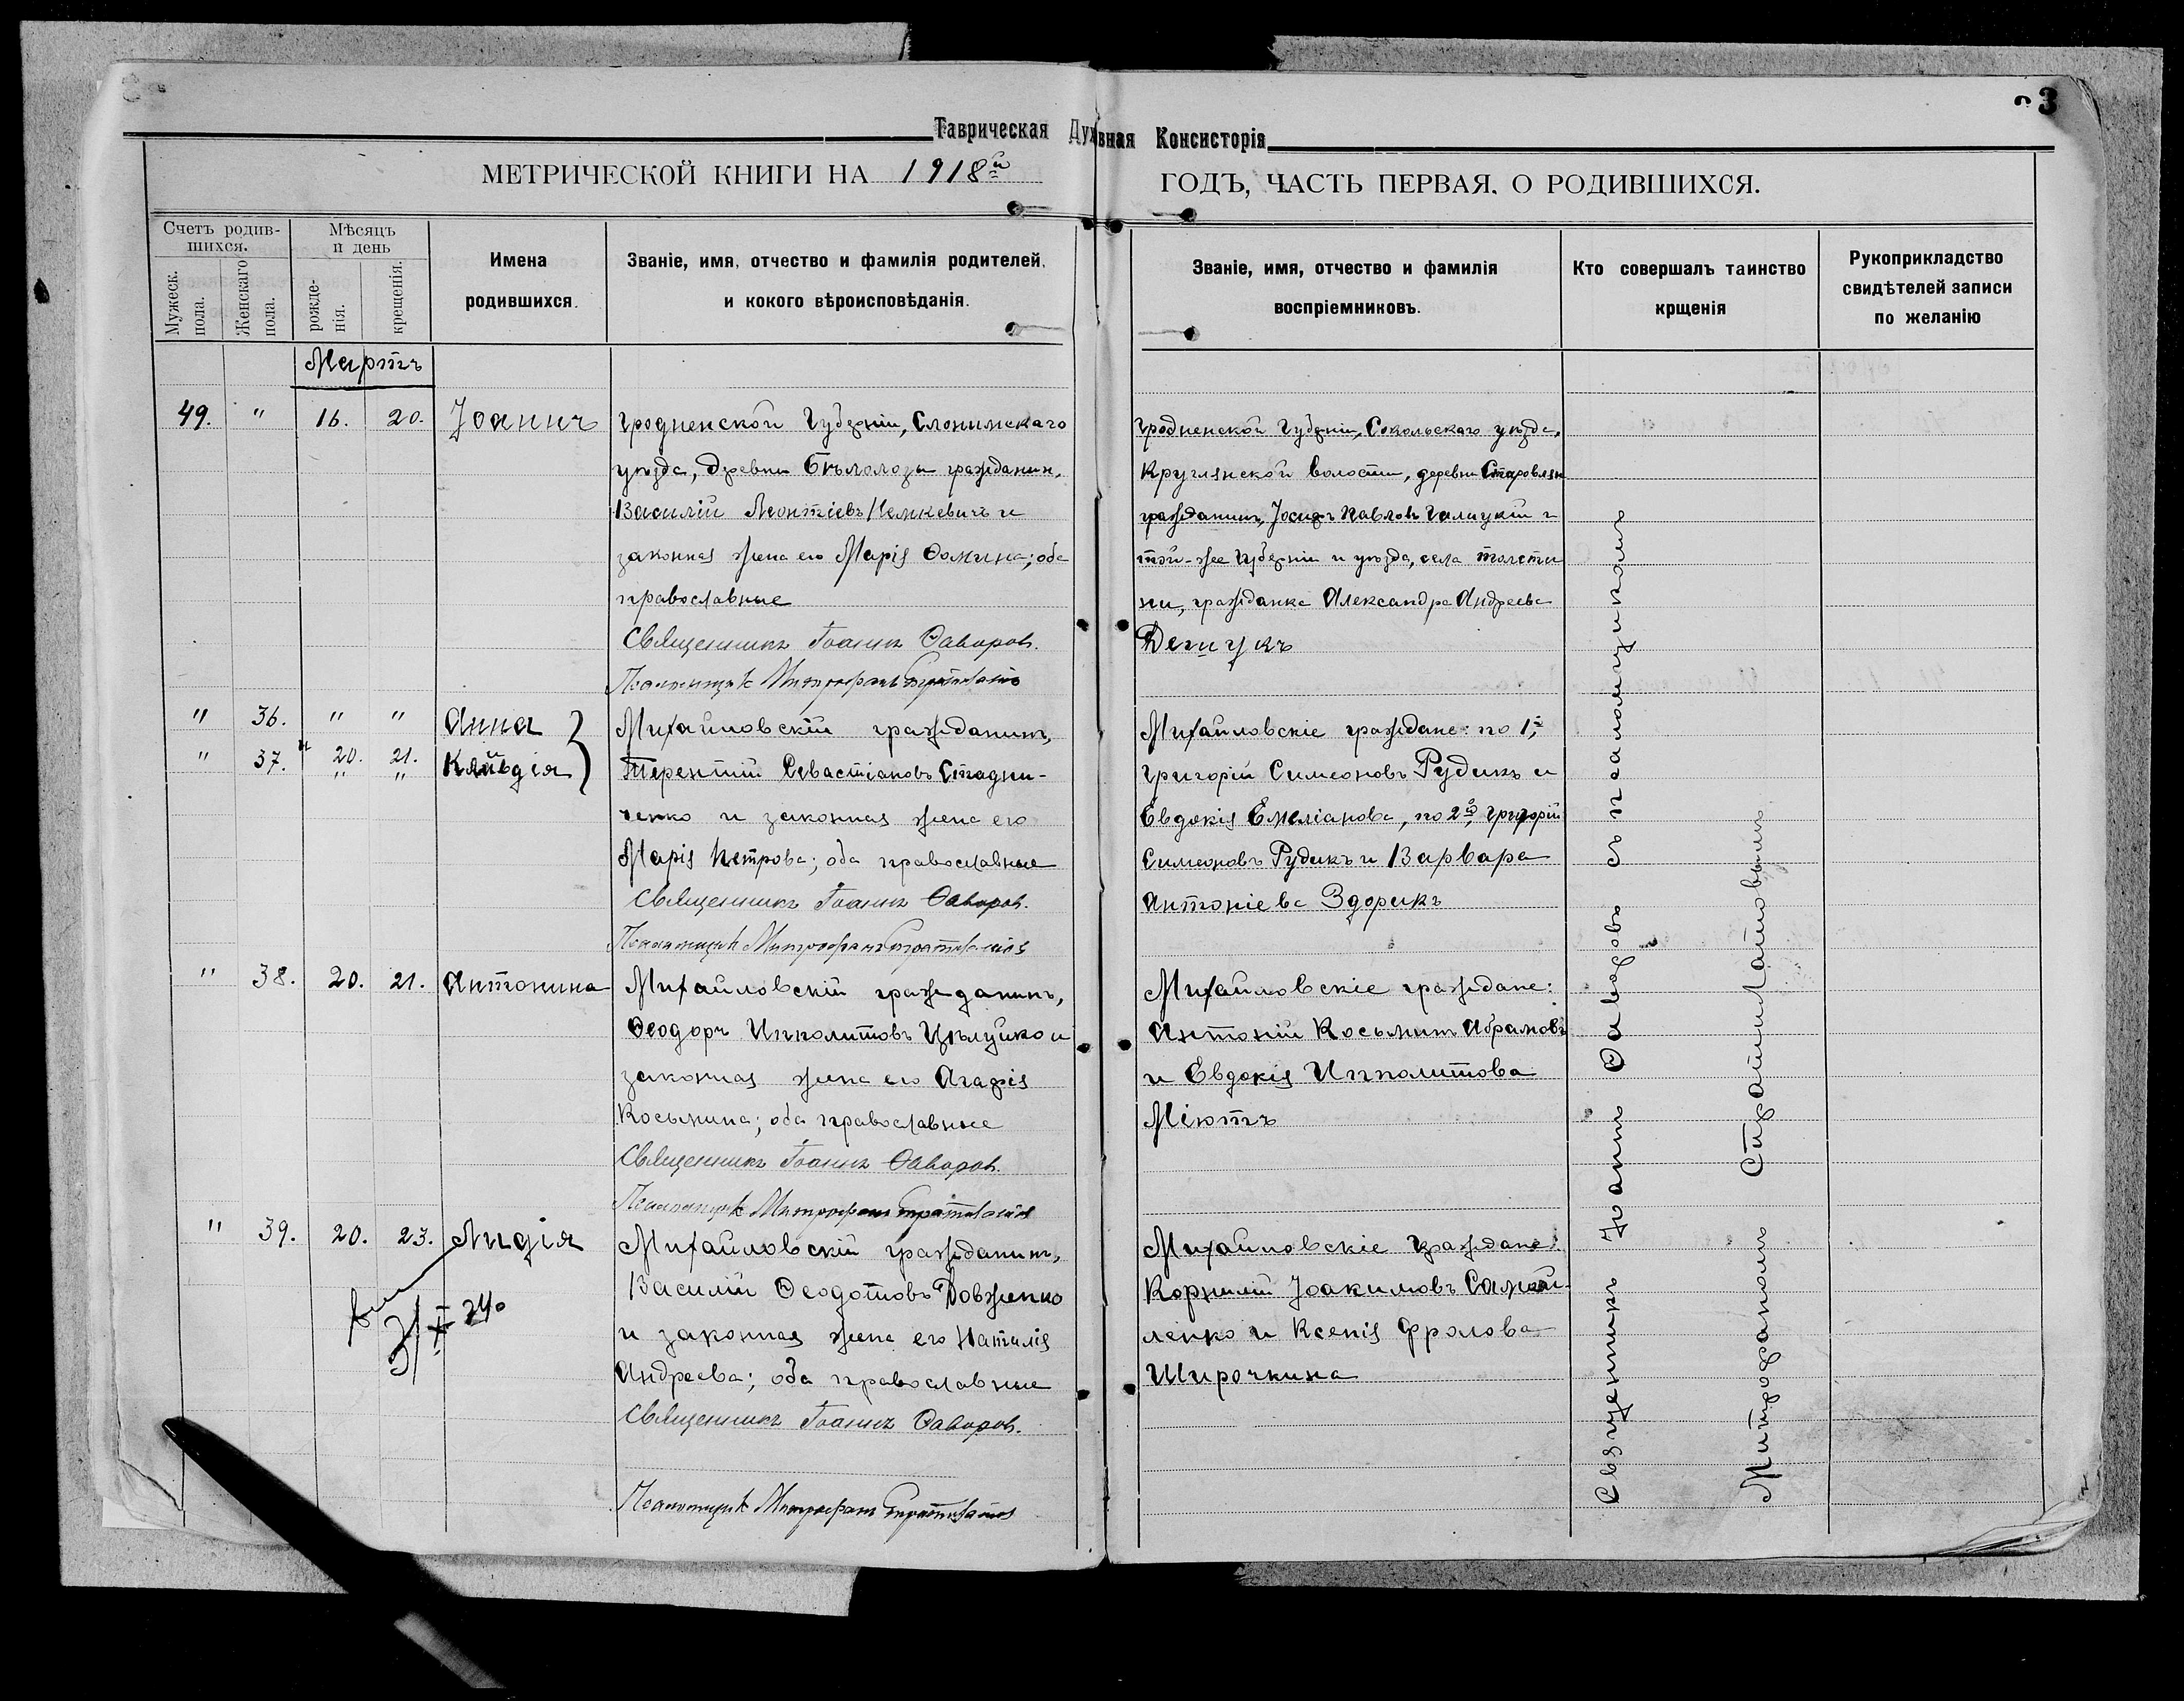 Таврическая Духовная Консисторія
3
МЕТРИЧЕСКОЙ КНИГИ НА 1918й
ГОДЪ, ЧАСТЬ ПЕРВАЯ, О РОДИВШИХСЯ.
Счетъ родив-
шихся.
Мужеск. пола.
Женскаго пола.
Мѣсяцъ
и день
рожде-
нія.
крещенія.
Имена
родившихся.
Званіе, имя, отчество и фамилія родителей,
и кокого вѣроисповѣданія.
Званіе, имя, отчество и фамилія
воспріемниковъ.
Кто совершалъ таинство
крщенія
Рукоприкладство
свидѣтелей записи
по желанію
Мартъ
49. " 16. 20. Іоаннъ
Гродненской Губерніи, Слонимскаго
уѣзда, деревни Бѣлолоза гражданин,
Василій Леонтіевъ Немкевичъ и
законная жена его Марія Ѳомина; оба
православные
Священникъ Іоаннъ Ѳаворовъ.
Псаломщикъ Митрофанъ
Гродненской Губерніи, Сокольскаго уѣзда,
Круглянской волости, деревни
гражданинъ, Іосифъ Павловъ Галицкій и
той-же Губерніи и уѣзда, села Толсти
ни, гражданка Александра Андреева
" 36. " " Анна
" 37. 20. 21. Клавдія
" "
Михайловскій гражданинъ,
Терентій Севастіановъ Стадни-
ченко и законная жена его
Марія Петрова; оба православные
Священникъ Іоаннъ Ѳаворовъ.
Псаломщикъ Митрофанъ
Михайловскіе граждане: по 1й,
Григорій Симеоновъ Рудикъ и
Евдокія Емеліанова, по 2й, Григорій
Симеоновъ Рудикъ и Варвара
Антоніева Здорикъ
" 38. 20. 21. Антонина
Михайловскій гражданинъ,
Ѳеодоръ Ипполитовъ Цѣлуйко и
законная жена его Агафія
Косьмина; оба православные
Священникъ Іоаннъ Ѳаворовъ.
Псаломщикъ Митрофанъ
Михайловскіе граждане:
Антоній Косьминъ Абрамовъ
и Евдокія Ипполитова
Міютъ
" 39. 20. 23. Лидія
Михайловскій гражданинъ,
Василій Ѳеодотовъ Довженко
и законная жена его Наталія
Андреева; оба православные
Священникъ Іоаннъ Ѳаворовъ.
Псаломщикъ Митрофанъ
Михайловскіе граждане:
Корнилій Іоакимовъ Самой-
ленко и Ксенія Фролова
Широчкина
Священникъ Іоаннъ Ѳаворовъ съ псаломщикомъ
Митрофаномъ